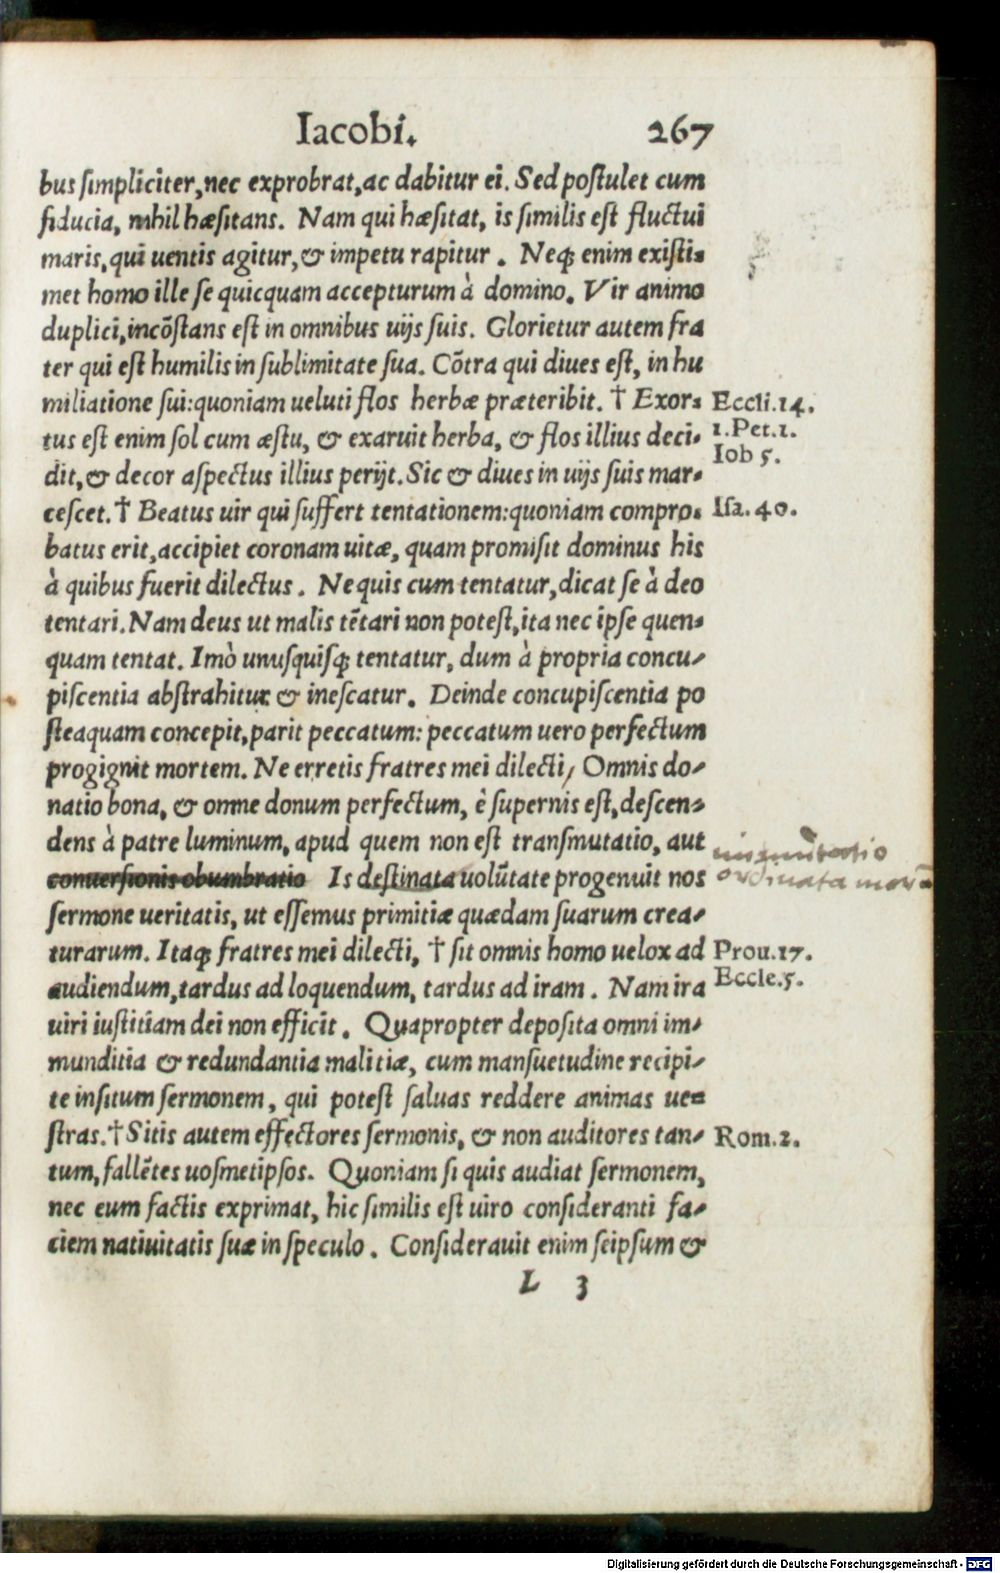 Iacobi. 267
bus simpliciter, nec exprobrat, ac dabitur ei. Sed postulet cum
fiducia, nihil hæsitans. Nam qui hæsitat, is similis est fluctui
maris, qui uentis agitur, & impetu rapitur. Neq; enim existi-
met homo ille se quicquam accepturum à domino. Vir animo
duplici, incõstans est in omnibus uijs suis. Glorietur autem fra
ter qui est humilis in sublimitate sua. Cõtra qui diues est, in hu
miliatione sui: quoniam ueluti flos herbæ præteribit. † Exor-
Eccli. 14.
tus est enim sol cum æstu, & exaruit herba, & flos illius deci-
1. Pet. 1.
Iob 5.
dit, & decor aspectus illius perijt. Sic & diues in uijs suis mar-
cescet. † Beatus uir qui suffert tentationem: quoniam compro-
Isa. 40.
batus erit, accipiet coronam uitæ, quam promisit dominus his
à quibus fuerit dilectus. Ne quis cum tentatur, dicat se à deo
tentari. Nam deus ut malis tẽtari non potest, ita nec ipse quen-
quam tentat. Imò unusquisq; tentatur, dum à propria concu-
piscentia abstrahitur & inescatur. Deinde concupiscentia po
steaquam concepit, parit peccatum: peccatum uero perfectum
progignit mortem. Ne erretis fratres mei dilecti, Omnis do-
natio bona, & omne donum perfectum, è supernis est, descen-
dens à patre luminum, apud quem non est transmutatio, aut
conuersionis obumbratio Is destinata uolũtate progenuit nos
sermone ueritatis, ut essemus primitiæ quædam suarum crea-
turarum. Itaq; fratres mei dilecti, † sit omnis homo uelox ad
Prou. 17.
Eccle. 5.
audiendum, tardus ad loquendum, tardus ad iram. Nam ira
uiri iustitiam dei non efficit. Quapropter deposita omni im-
munditia & redundantia malitiæ, cum mansuetudine recipi-
te insitum sermonem, qui potest saluas reddere animas ue-
stras. † Sitis autem effectores sermonis, & non auditores tan-
Rom. 2.
tum, fallẽtes uosmetipsos. Quoniam si quis audiat sermonem,
nec eum factis exprimat, hic similis est uiro consideranti fa-
ciem natiuitatis suæ in speculo. Considerauit enim seipsum &
L 3
Digitalisierung gefördert durch die Deutsche Forschungsgemeinschaft - DFG